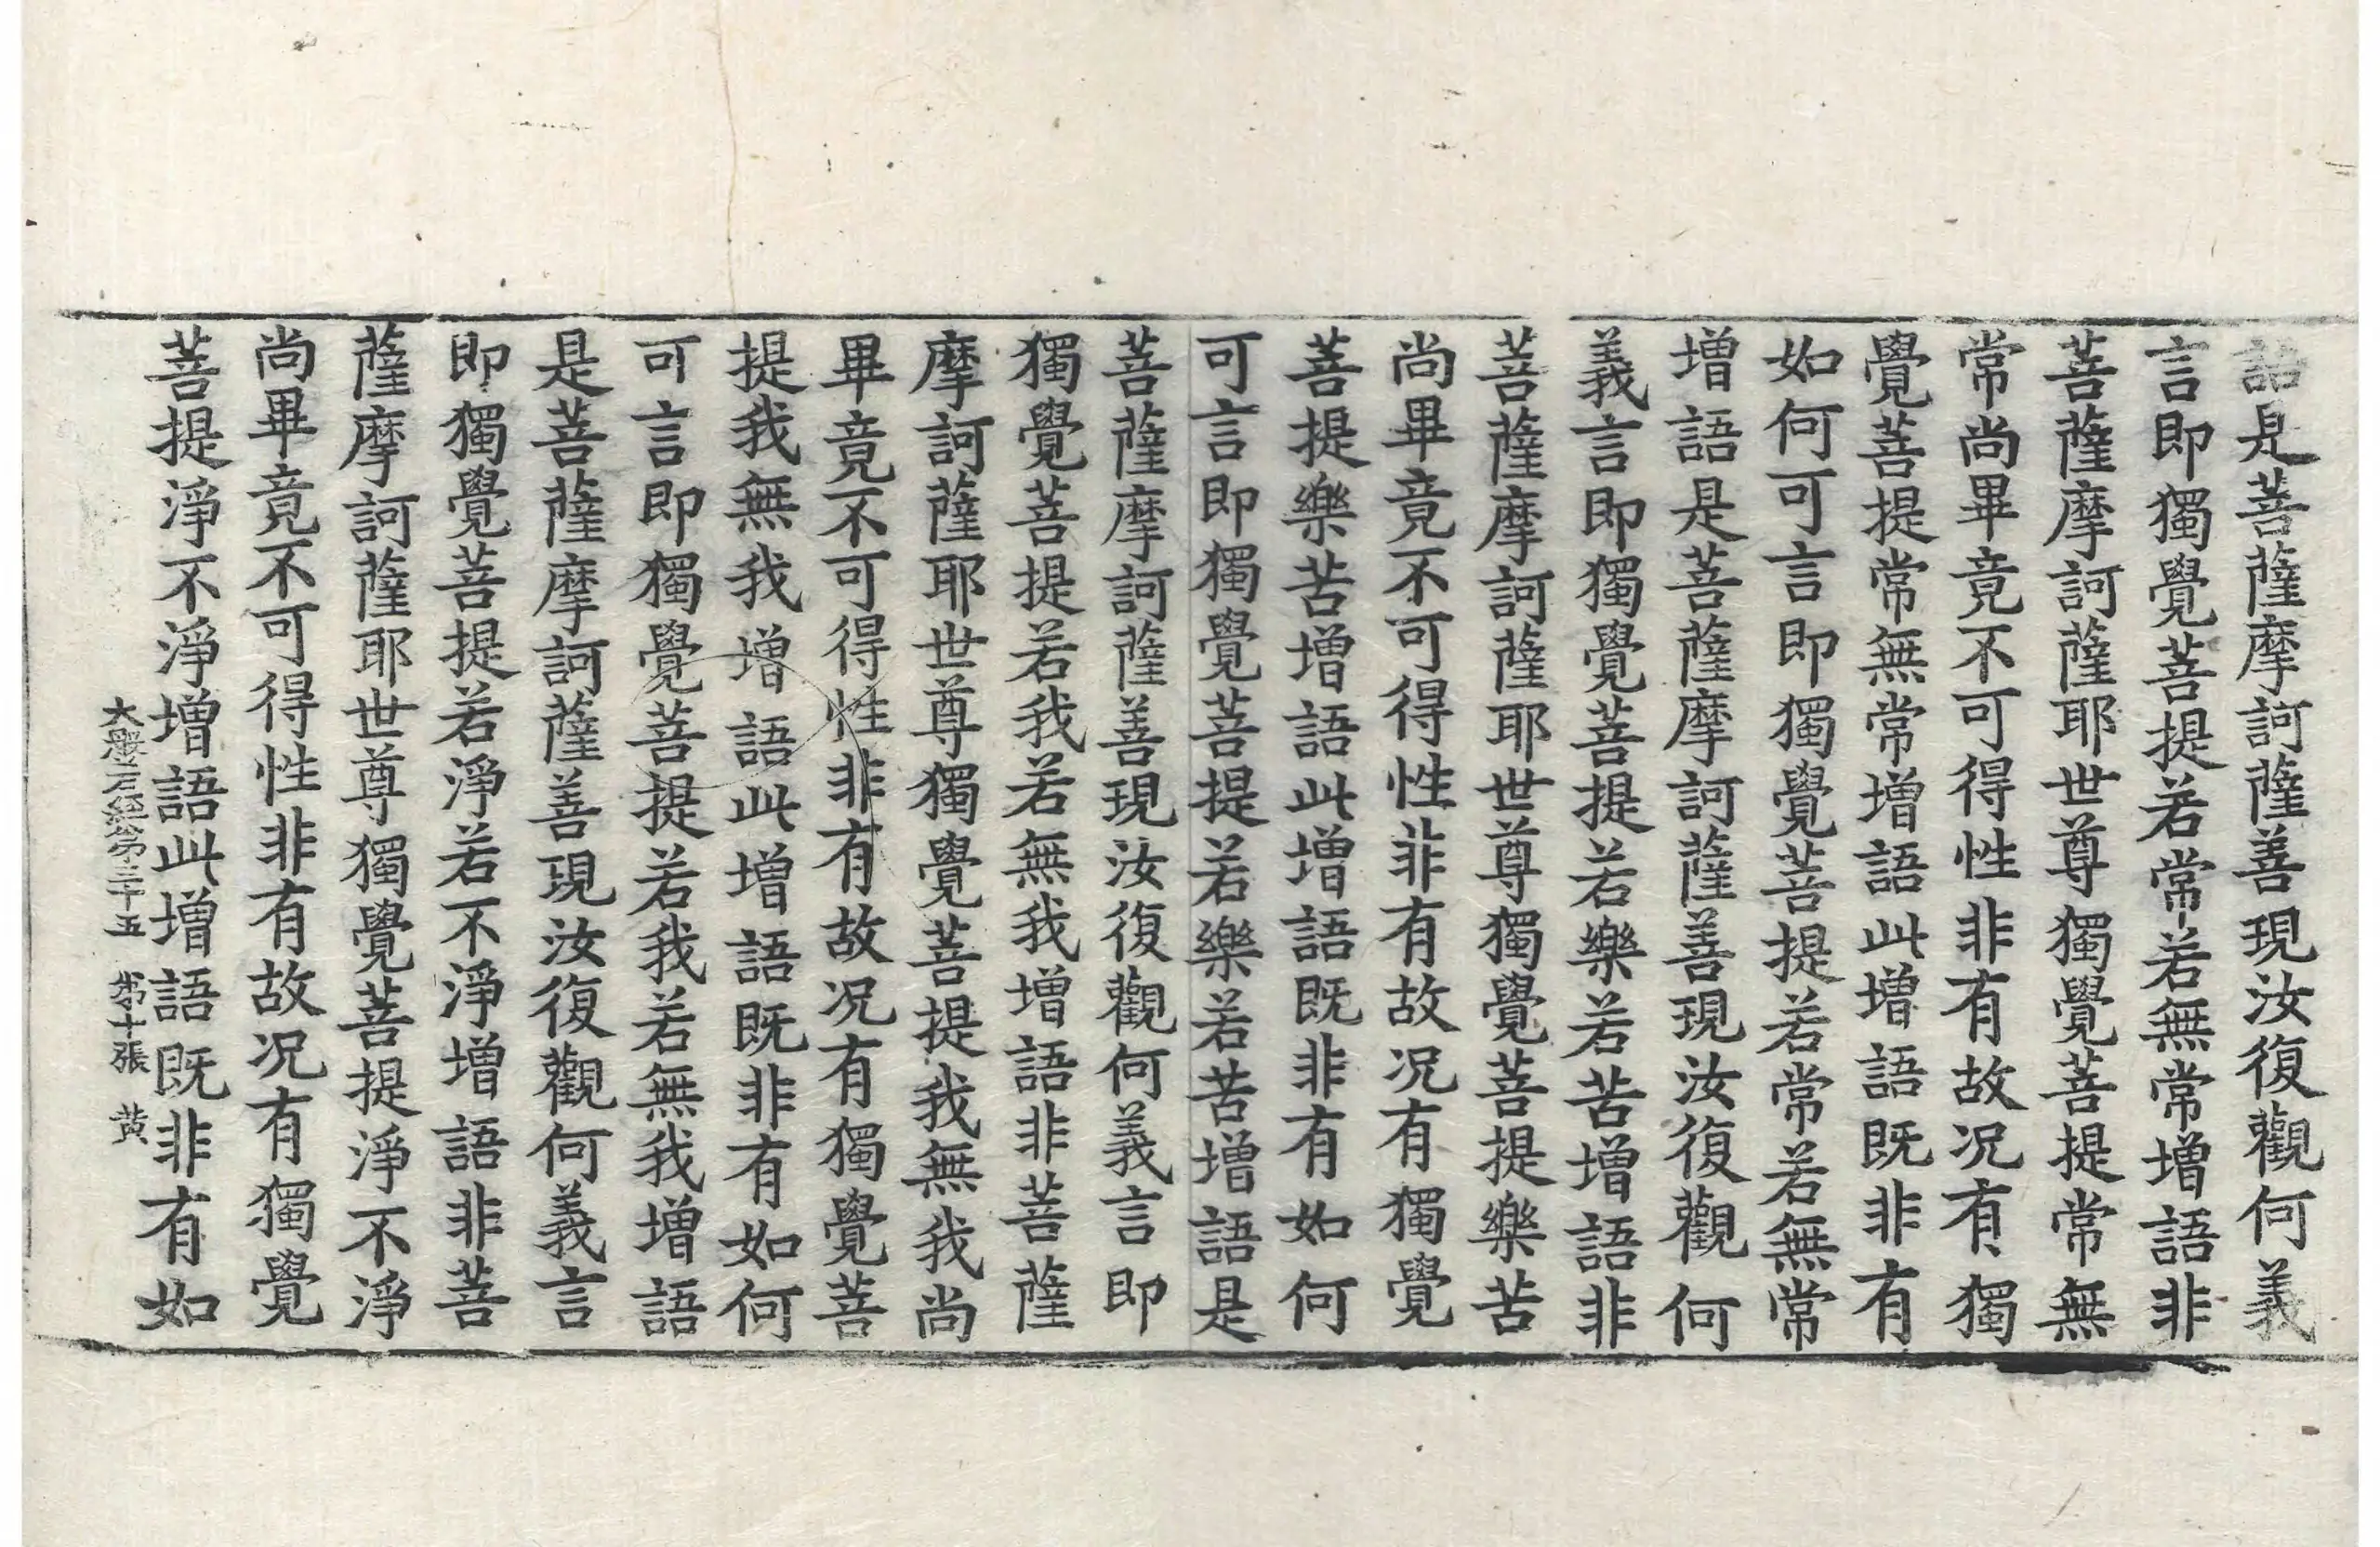 語是菩薩摩訶薩善現汝復觀何義
言即獨覺菩提若常若無常增語非
菩薩摩訶薩耶世尊獨覺菩提常無
常尚畢竟不可得性非有故况有獨
覺菩提常無常增語此增語既非有
如何可言即獨覺菩提若常若無常
增語是菩薩摩訶薩善現汝復觀何
義言即獨覺菩提若樂若苦增語非
菩薩摩訶薩耶世尊獨覺菩提樂苦
尚畢竟不可得性非有故况有獨覺
菩提樂苦增語此增語既非有如何
可言即獨覺菩提若樂若苦增語是
菩薩摩訶薩善現汝復觀何義言即
獨覺菩提若我若無我增語非菩薩
摩訶薩耶世尊獨覺菩提我無我尚
畢竟不可得性非有故况有獨覺菩
提我無我增語此增語既非有如何
可言即獨覺菩提若我若無我增語
是菩薩摩訶薩善現汝復觀何義言
即獨覺菩提若淨若不淨增語非菩
薩摩訶薩耶世尊獨覺菩提淨不淨
尚畢竟不可得性非有故况有獨覺
菩提淨不淨增語此增語既非有如
大般若經第三十五 第十張 黃